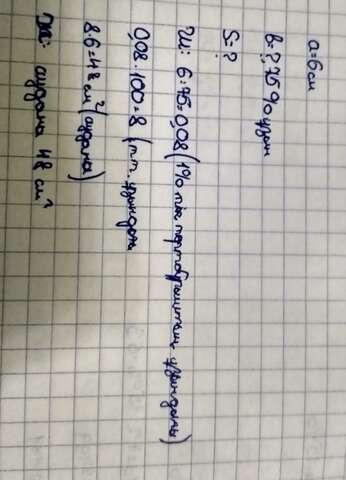 a=6см
b=? 75% узын
S=?
Ш: 6:75=0,08 (1% тік төртбұрыштың ұзындығы)
0,08·100=8 (т.т. ұзындығы
8·6=48 см² (ауданы)
Ж: ауданы 48 см²